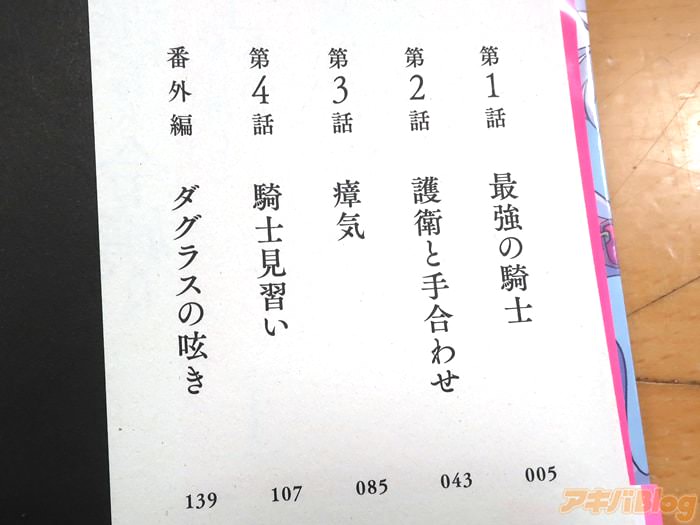 第1話 最強の騎士 005
第2話 護衛と手合わせ 043
第3話 瘴気 085
第4話 騎士見習い 107
番外編 ダグラスの呟き 139
アキバBlog